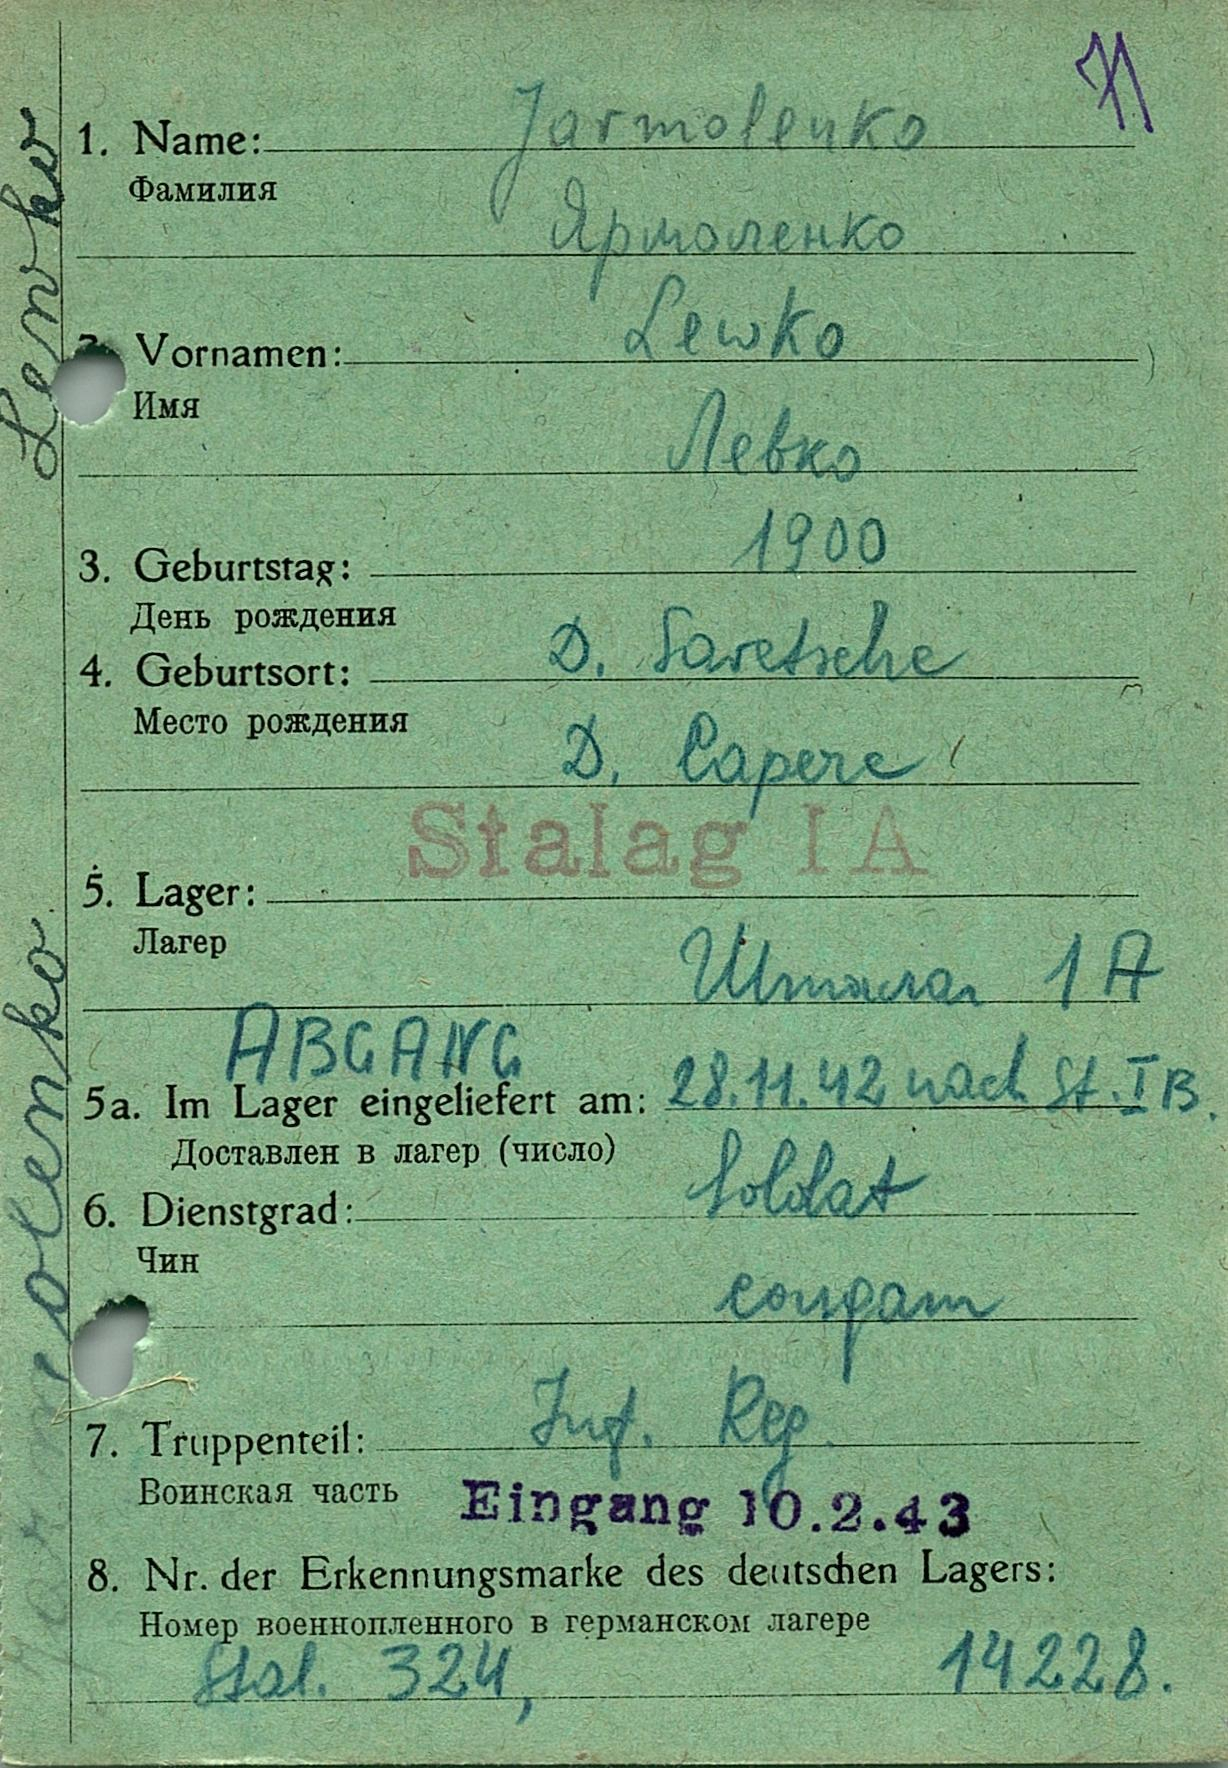 71
1. Name: Jarmolenko
Фамилия
Ярмоленко
2. Vornamen: Lewko
Имя
Левко
3. Geburtstag: 1900
День рождения
4. Geburtsort: D. Saretsche
Место рождения
D.
Stalag I A
5. Lager:
Лагер
Шталаг 1 А
ABGANG
5a. Im Lager eingeliefert am: 28.11.42 nach St. I B.
Доставлен в лагер (число)
6. Dienstgrad: Soldat
Чин
солдат
7. Truppenteil: Inf. Reg.
Воинская часть
Eingang 10.2.43
8. Nr. der Erkennungsmarke des deutschen Lagers:
Номер военнопленного в германском лагере
Stal. 324, 14228.
Jarmolenko Lewko